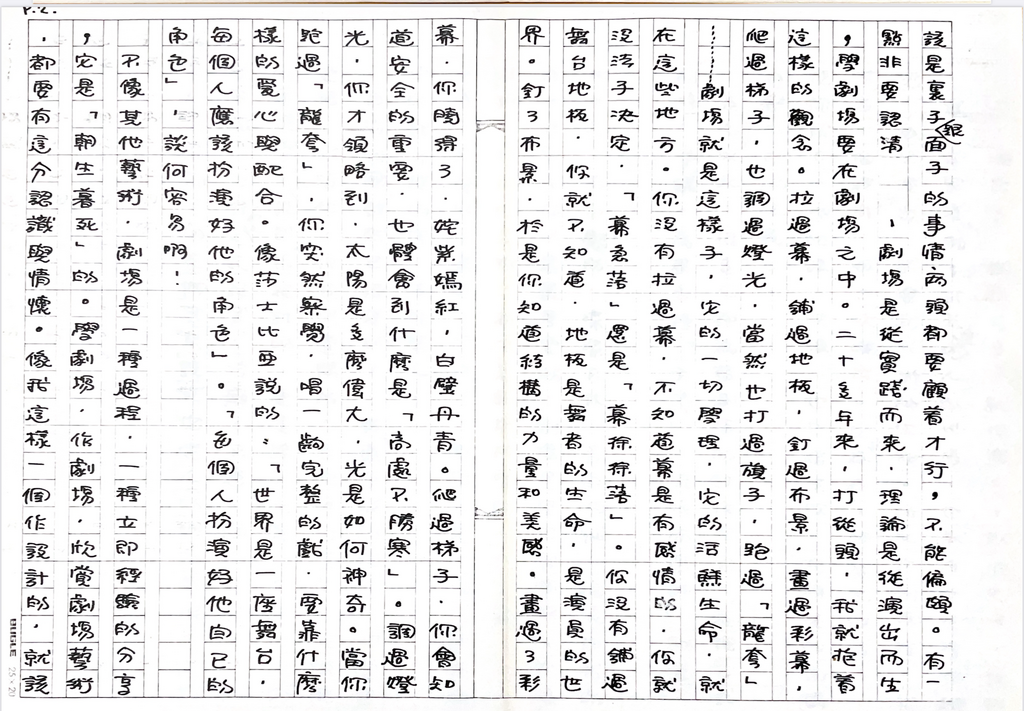 P.2.
該是裏子跟面子的事情,兩頭都要顧着才行,不能偏頗。有一
點非要認清——,劇場是從實踐而來,理論是從演出而生
,學劇場要在劇場之中。二十多年來,打從頭,我就抱着
這樣的觀念。拉過幕,鋪過地板,釘過布景,畫過彩幕,
爬過梯子,也調過燈光,當然也打過旗子,跑過「龍套」
……劇場就是這樣子,它的一切學理,它的活鮮生命,就
在這些地方。你沒有拉過幕,不知道幕是有感情的,你就
沒法子決定,「幕急落」還是「幕徐徐落」。你沒有鋪過
舞台地板,你就不知道,地板是舞者的生命,是演員的世
界。釘了布景,於是你知道結構的力量和美感。畫過了彩
幕,你曉得了,姹紫嫣紅,白壁丹青。爬過梯子,你會知
道安全的重要,也體會到什麼是「高處不勝寒」。調過燈
光,你才領略到,太陽是多麼偉大,光是如何神奇。當你
跑過「龍套」,你突然察覺,唱一齣完整的戲,要靠什麼
樣的愛心與配合。像莎士比亞說的:「世界是一座舞台,
每個人應該扮演好他的角色」。「各個人扮演好他自己的
角色」,說何容易啊!
不像其他藝術,劇場是一種過程,一種立即經驗的分享
,它是「朝生暮死」的。學劇場,作劇場,欣賞劇場藝術
,都要有這分認識與情懷。像我這樣一個作設計的,就該
25×20